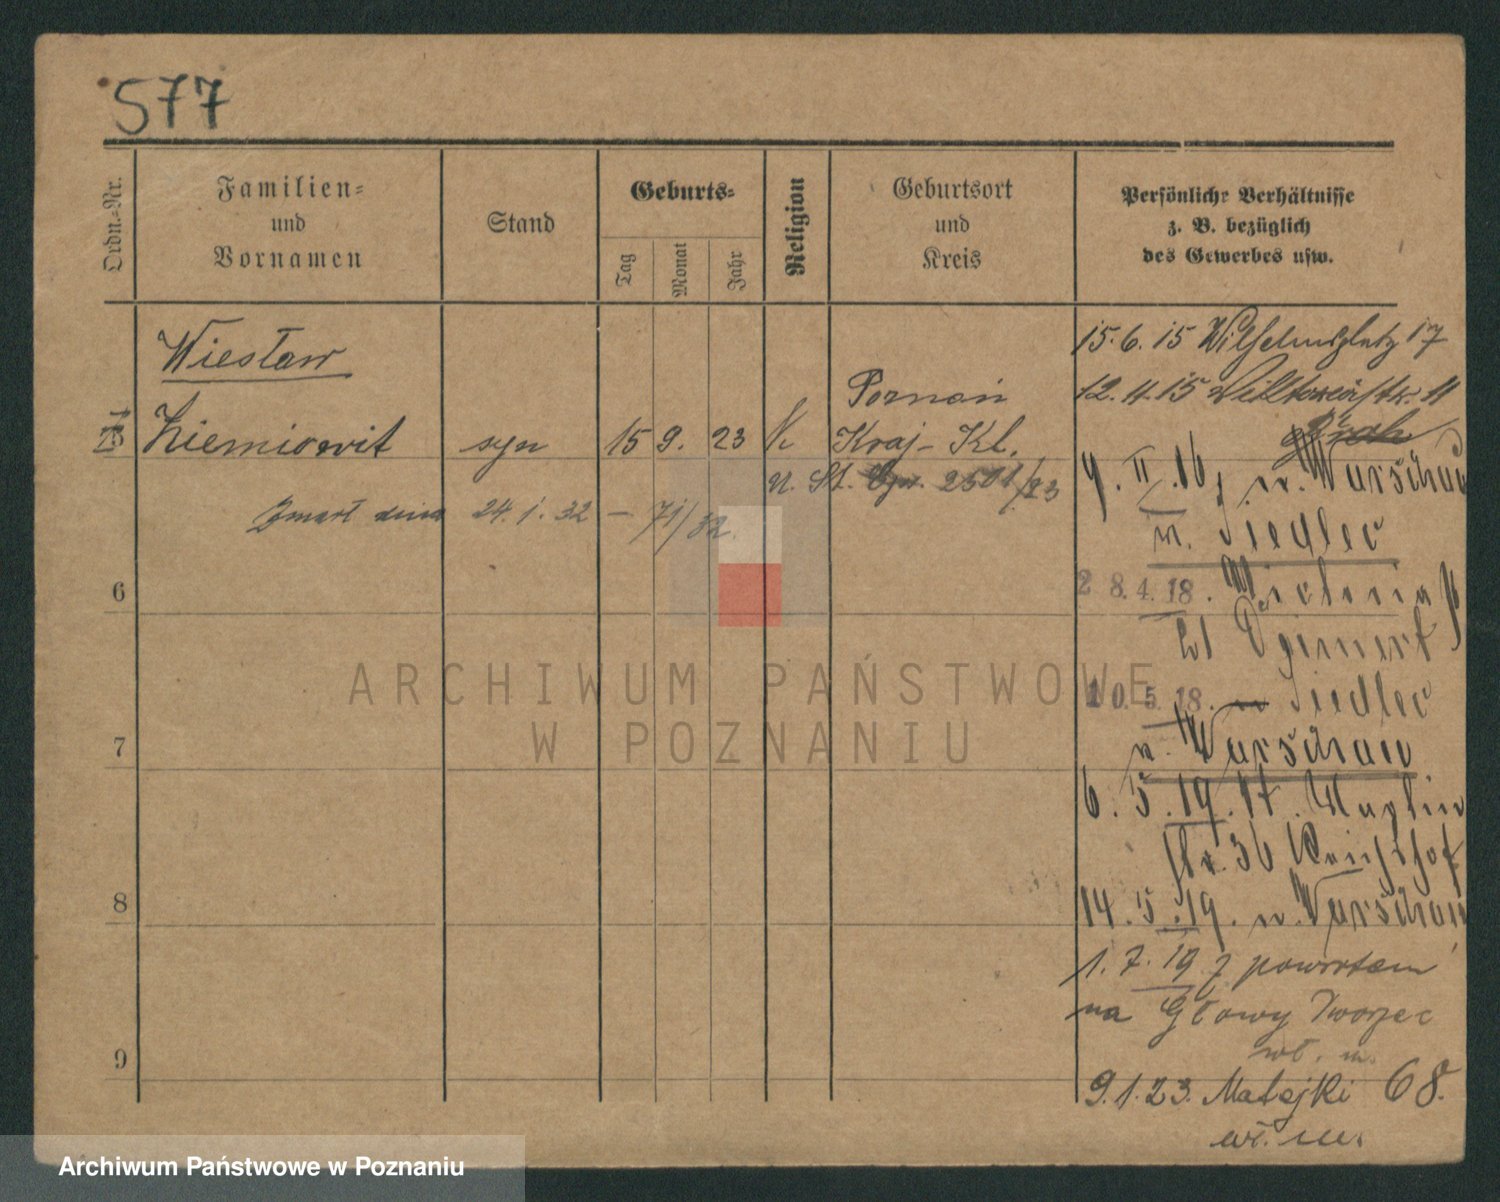 577
Ordn.-Nr.
Familien-
und
Vornamen
Stand
Geburts-
Tag
Monat
Jahr
Religion
Geburtsort
und
Kreis
Persönliche Verhältnisse
z. B. bezüglich
des Gewerbes usw.
Wiesław
Ziemiowit syn 15 9. 23 K
Poznań
Kraj-Kl.
U. St. 2501/23
Zmarł dnia 24.1.32 – 71/32.
6
7
8
9
15.6.15 Wilhelmsplatz 17
12.11.15 11
9.II.16 n. Warschau
n. Siedlec
28.4.18. Victoria
10.5.18. Siedlec
n. Warschau
6.5.19. 17.
str. 36
14.5.19. n. Warschau
1.7.19 z powrotem
na Główny Dworzec
wł. m.
9.1.23. Matejki 68.
wł. m.
ARCHIWUM PAŃSTWOWE
W POZNANIU
Archiwum Państwowe w Poznaniu